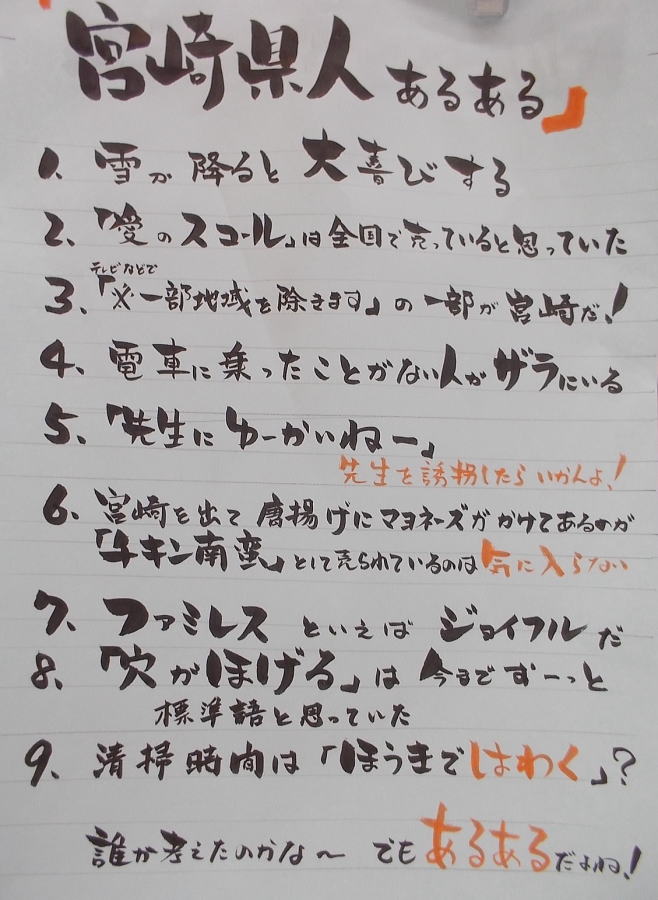 「宮崎県人あるある」
1、雪が降ると大喜びする
2、「愛のスコール」は全国で売っていると思っていた
テレビなどで
3、「※一部地域を除きます」の一部が宮崎だ!
4、電車に乗ったことがない人がザラにいる
5、「先生にゆーかいねー」
先生を誘拐したらいかんよ!
6、宮崎を出て唐揚げにマヨネーズがかけてあるのが
「チキン南蛮」として売られているのは気に入らない
7、ファミレスといえばジョイフルだ
8、「穴がほげる」は今までずーっと
標準語と思っていた
9、清掃時間は「ほうきではわく」?
誰が考えたのかな～でもあるあるだよね!